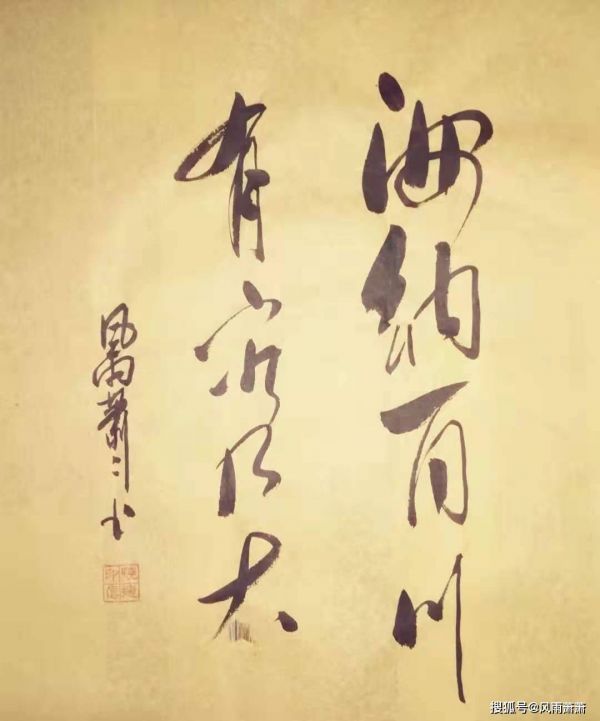 海纳百川
有容乃大
风雨萧〻书
搜狐号@风雨萧萧